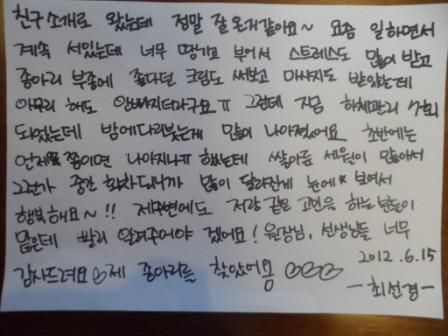 친구소개로 왔는데 정말 잘 온거같아요~ 요즘 일하면서
계속 서있는데 너무 땅기고 부어서 스트레스도 많이 받고
종아리 부종에 좋다던 크림도 써보고 마사지도 받았는데
아무리 해도 안빠지더라구요ㅠ 그런데 지금 하체관리 7회
되었는데 밤에 다리붓는게 많이 나아졌어요 초반에는
언제쯤이면 나아지나ㅠ 했는데 쌓아둔 세월이 많아서
그런가 중간 되니까 많이 달라진게 눈에 보여서
행복해요~!! 제주변에도 저랑 같은 고민을 하는 분들이
많은데 빨리 알려주어야 겠어요! 원장님, 선생님들 너무
감사드려요 제 종아리를 찾았어용
2012.6.15
-최선경-